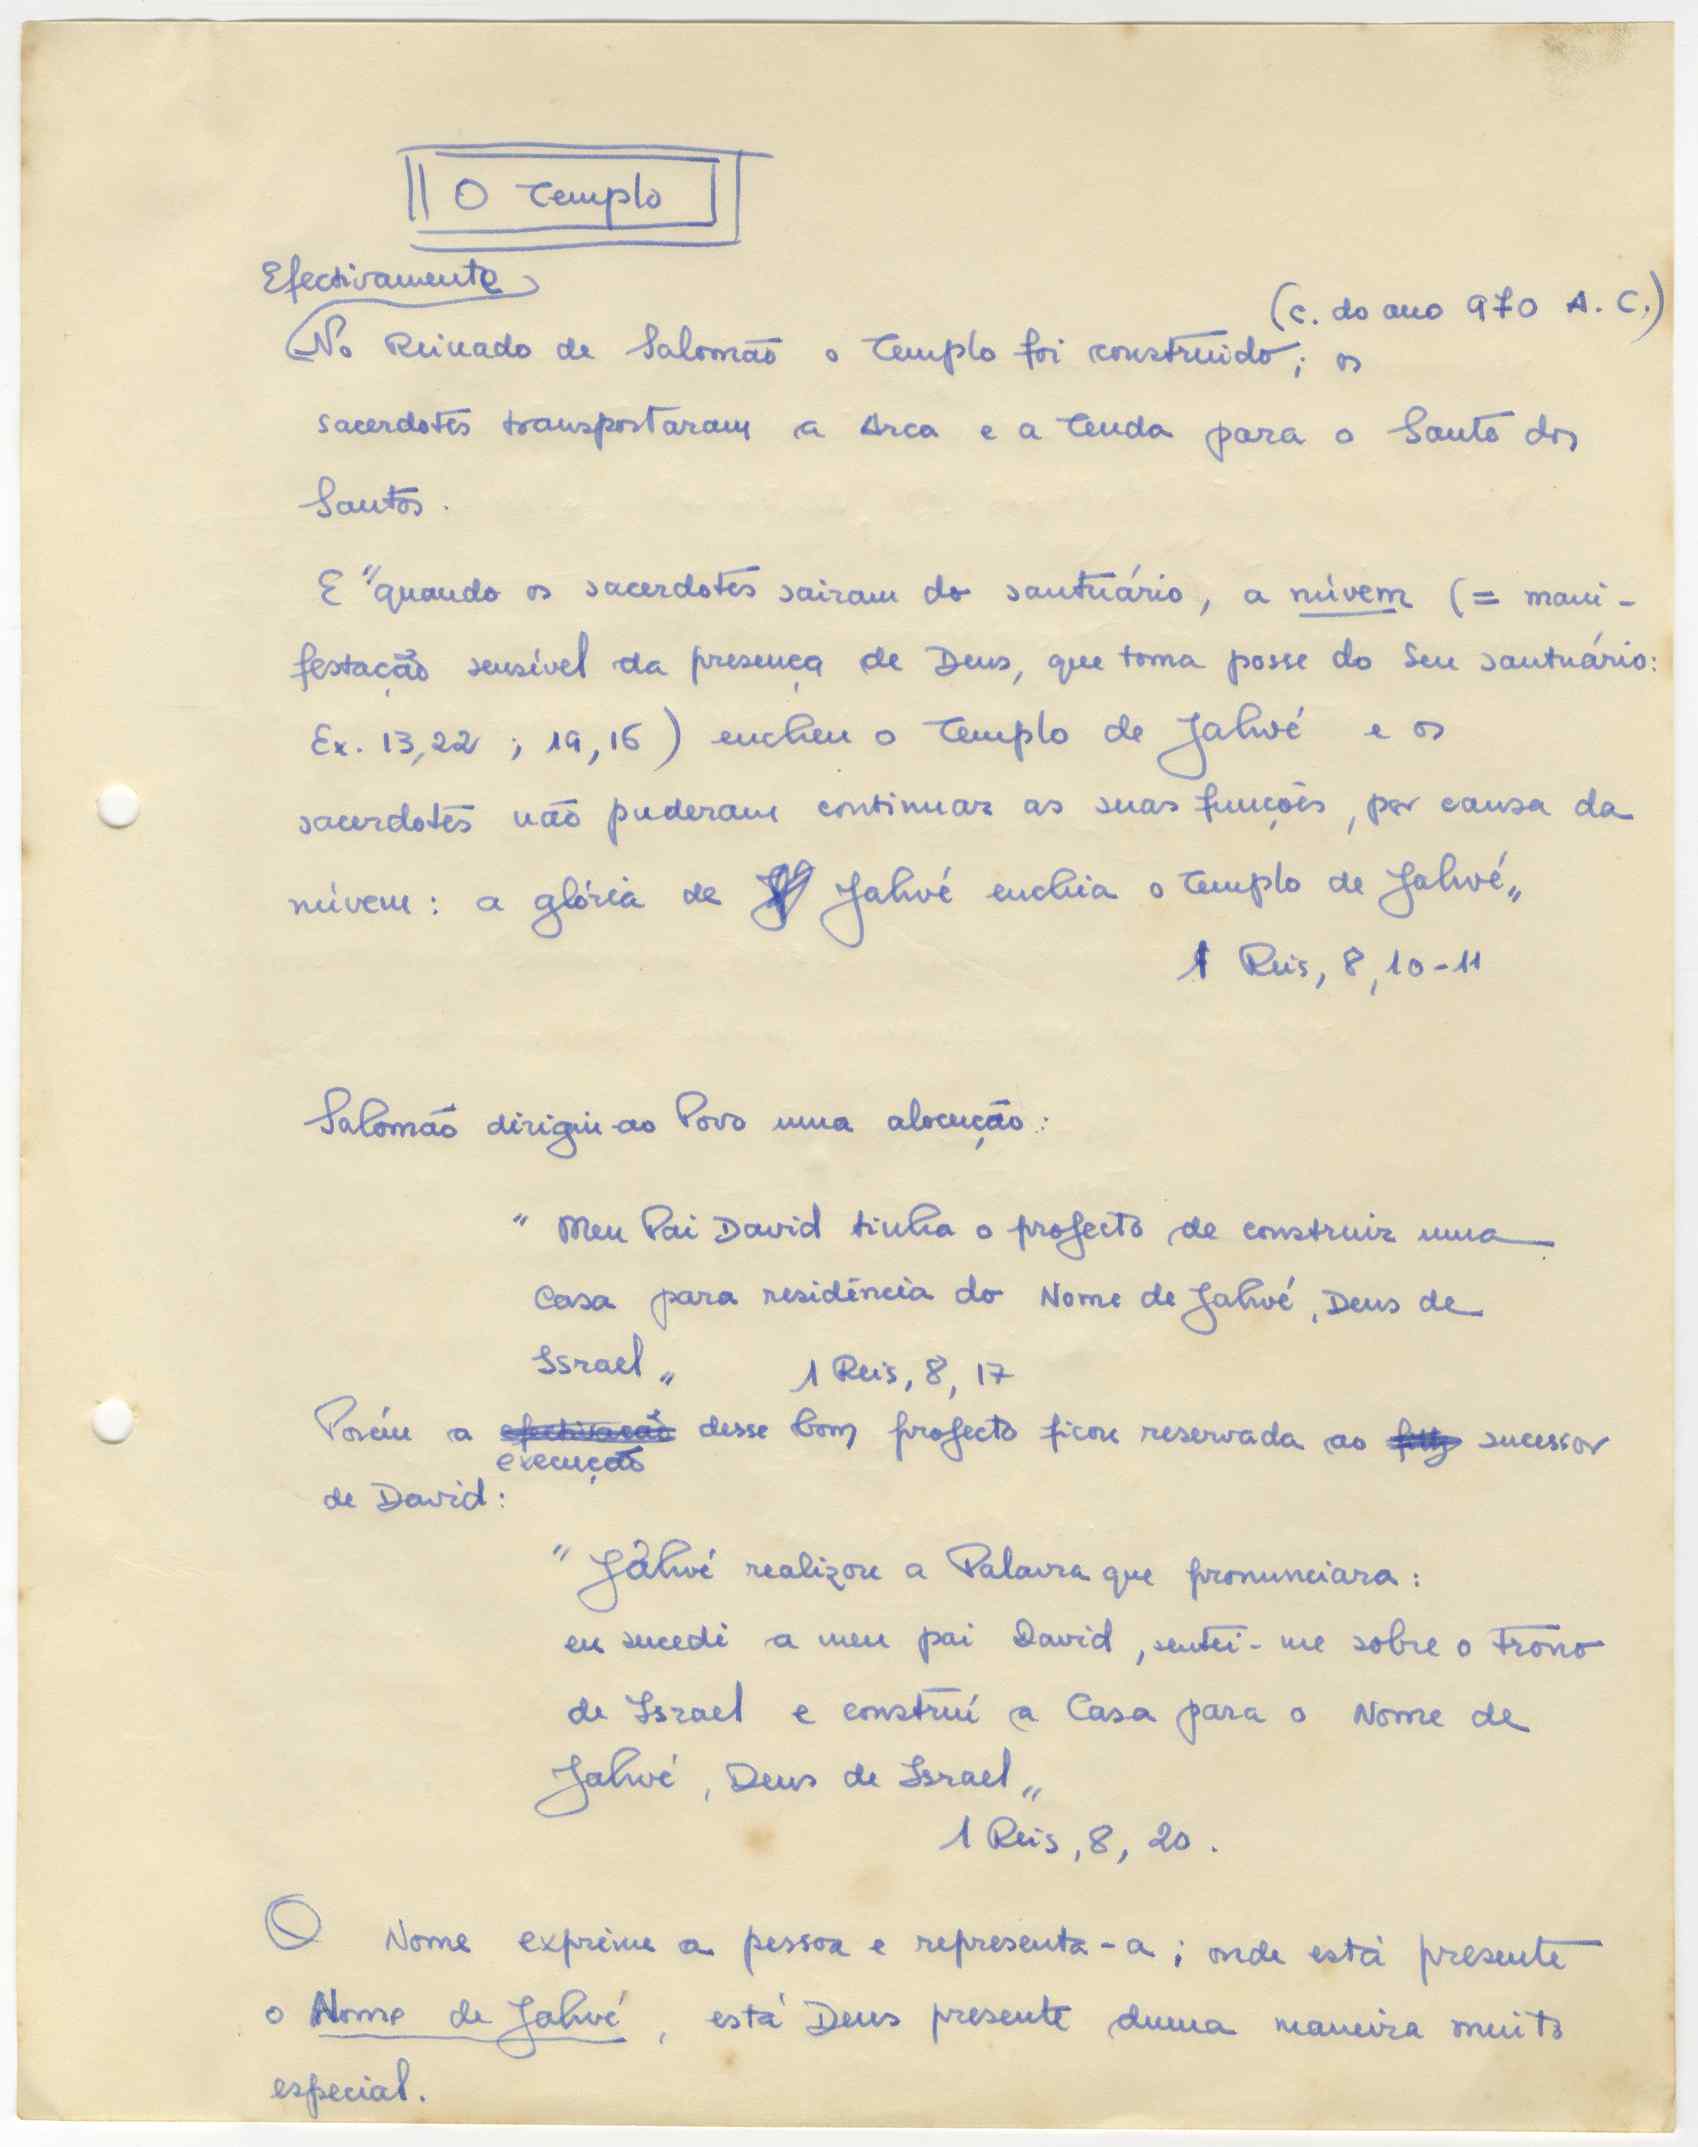 O Templo
Efectivamente
(c. do ano 970 A. C.)
No Reinado de Salomão o Templo foi construido; os
sacerdotes transportaram a Arca e a Tenda para o Santo dos
Santos.
E "quando os sacerdotes sairam do santuário, a núvem (= mani-
festação sensível da presença de Deus, que toma posse do Seu santuário:
Ex. 13,22 ; 19,16) encheu o Templo de Jahvé e os
sacerdotes não puderam continuar as suas funções, por causa da
núvem: a glória de Jahvé enchia o Templo de Jahvé"
1 Reis, 8, 10-11
Salomão dirigiu ao Povo uma alocução:
" Meu Pai David tinha o projecto de construir uma
Casa para residência do Nome de Jahvé, Deus de
Israel" 1 Reis, 8, 17
Porém a efectivação desse bom projecto ficou reservada ao sucessor
execução
de David:
" Jahvé realizou a Palavra que pronunciara:
eu sucedi a meu pai David, sentei-me sobre o Trono
de Israel e construí a Casa para o Nome de
Jahvé, Deus de Israel"
1 Reis, 8, 20.
O Nome exprime a pessoa e representa-a; onde está presente
o Nome de Jahvé, está Deus presente duma maneira muito
especial.